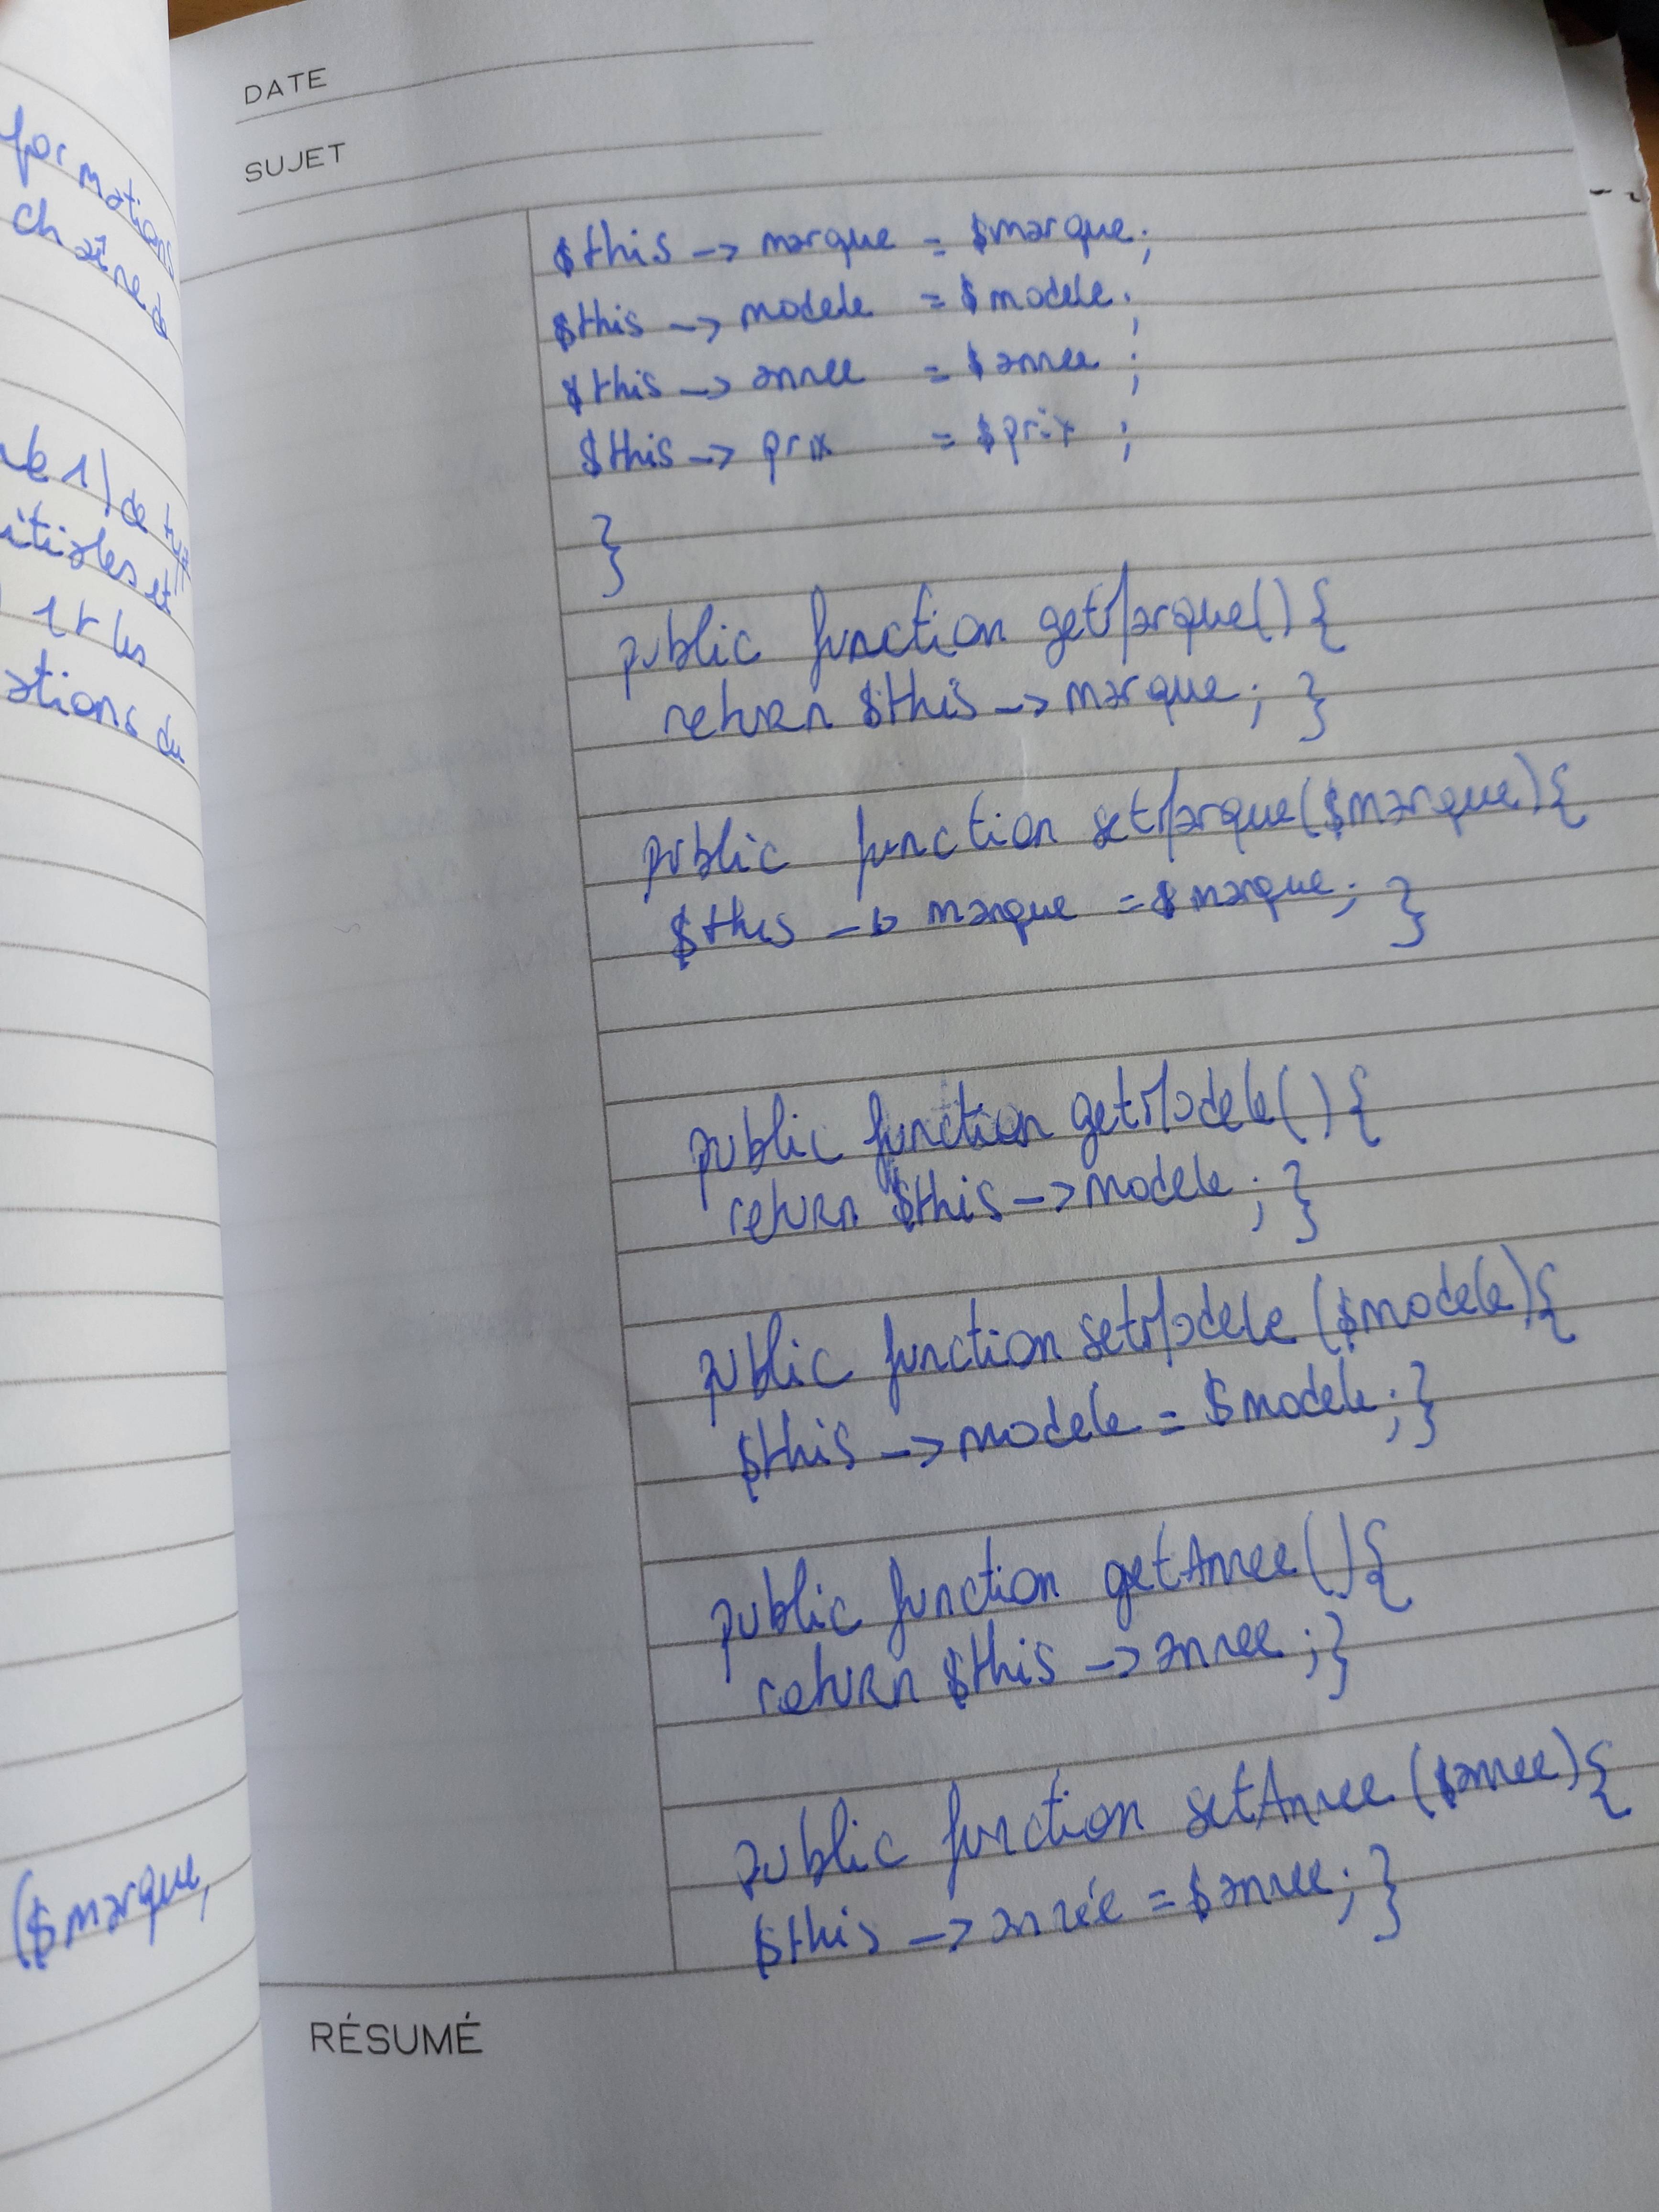 formations
chaîne de
1) de type
initiales et
et les
ations du
($marque,
DATE
SUJET
$this -> marque = $marque;
$this -> modele = $modele;
$this -> annee = $annee ;
$this -> prix = $prix ;
}
public function getMarque() {
return $this -> marque; }
public function setMarque($marque){
$this -> marque = $marque; }
public function getModele() {
return $this -> modele; }
public function setModele ($modele){
$this -> modele = $modele; }
public function getAnnee() {
return $this -> annee; }
public function setAnnee ($annee){
$this -> année = $annee; }
RÉSUMÉ